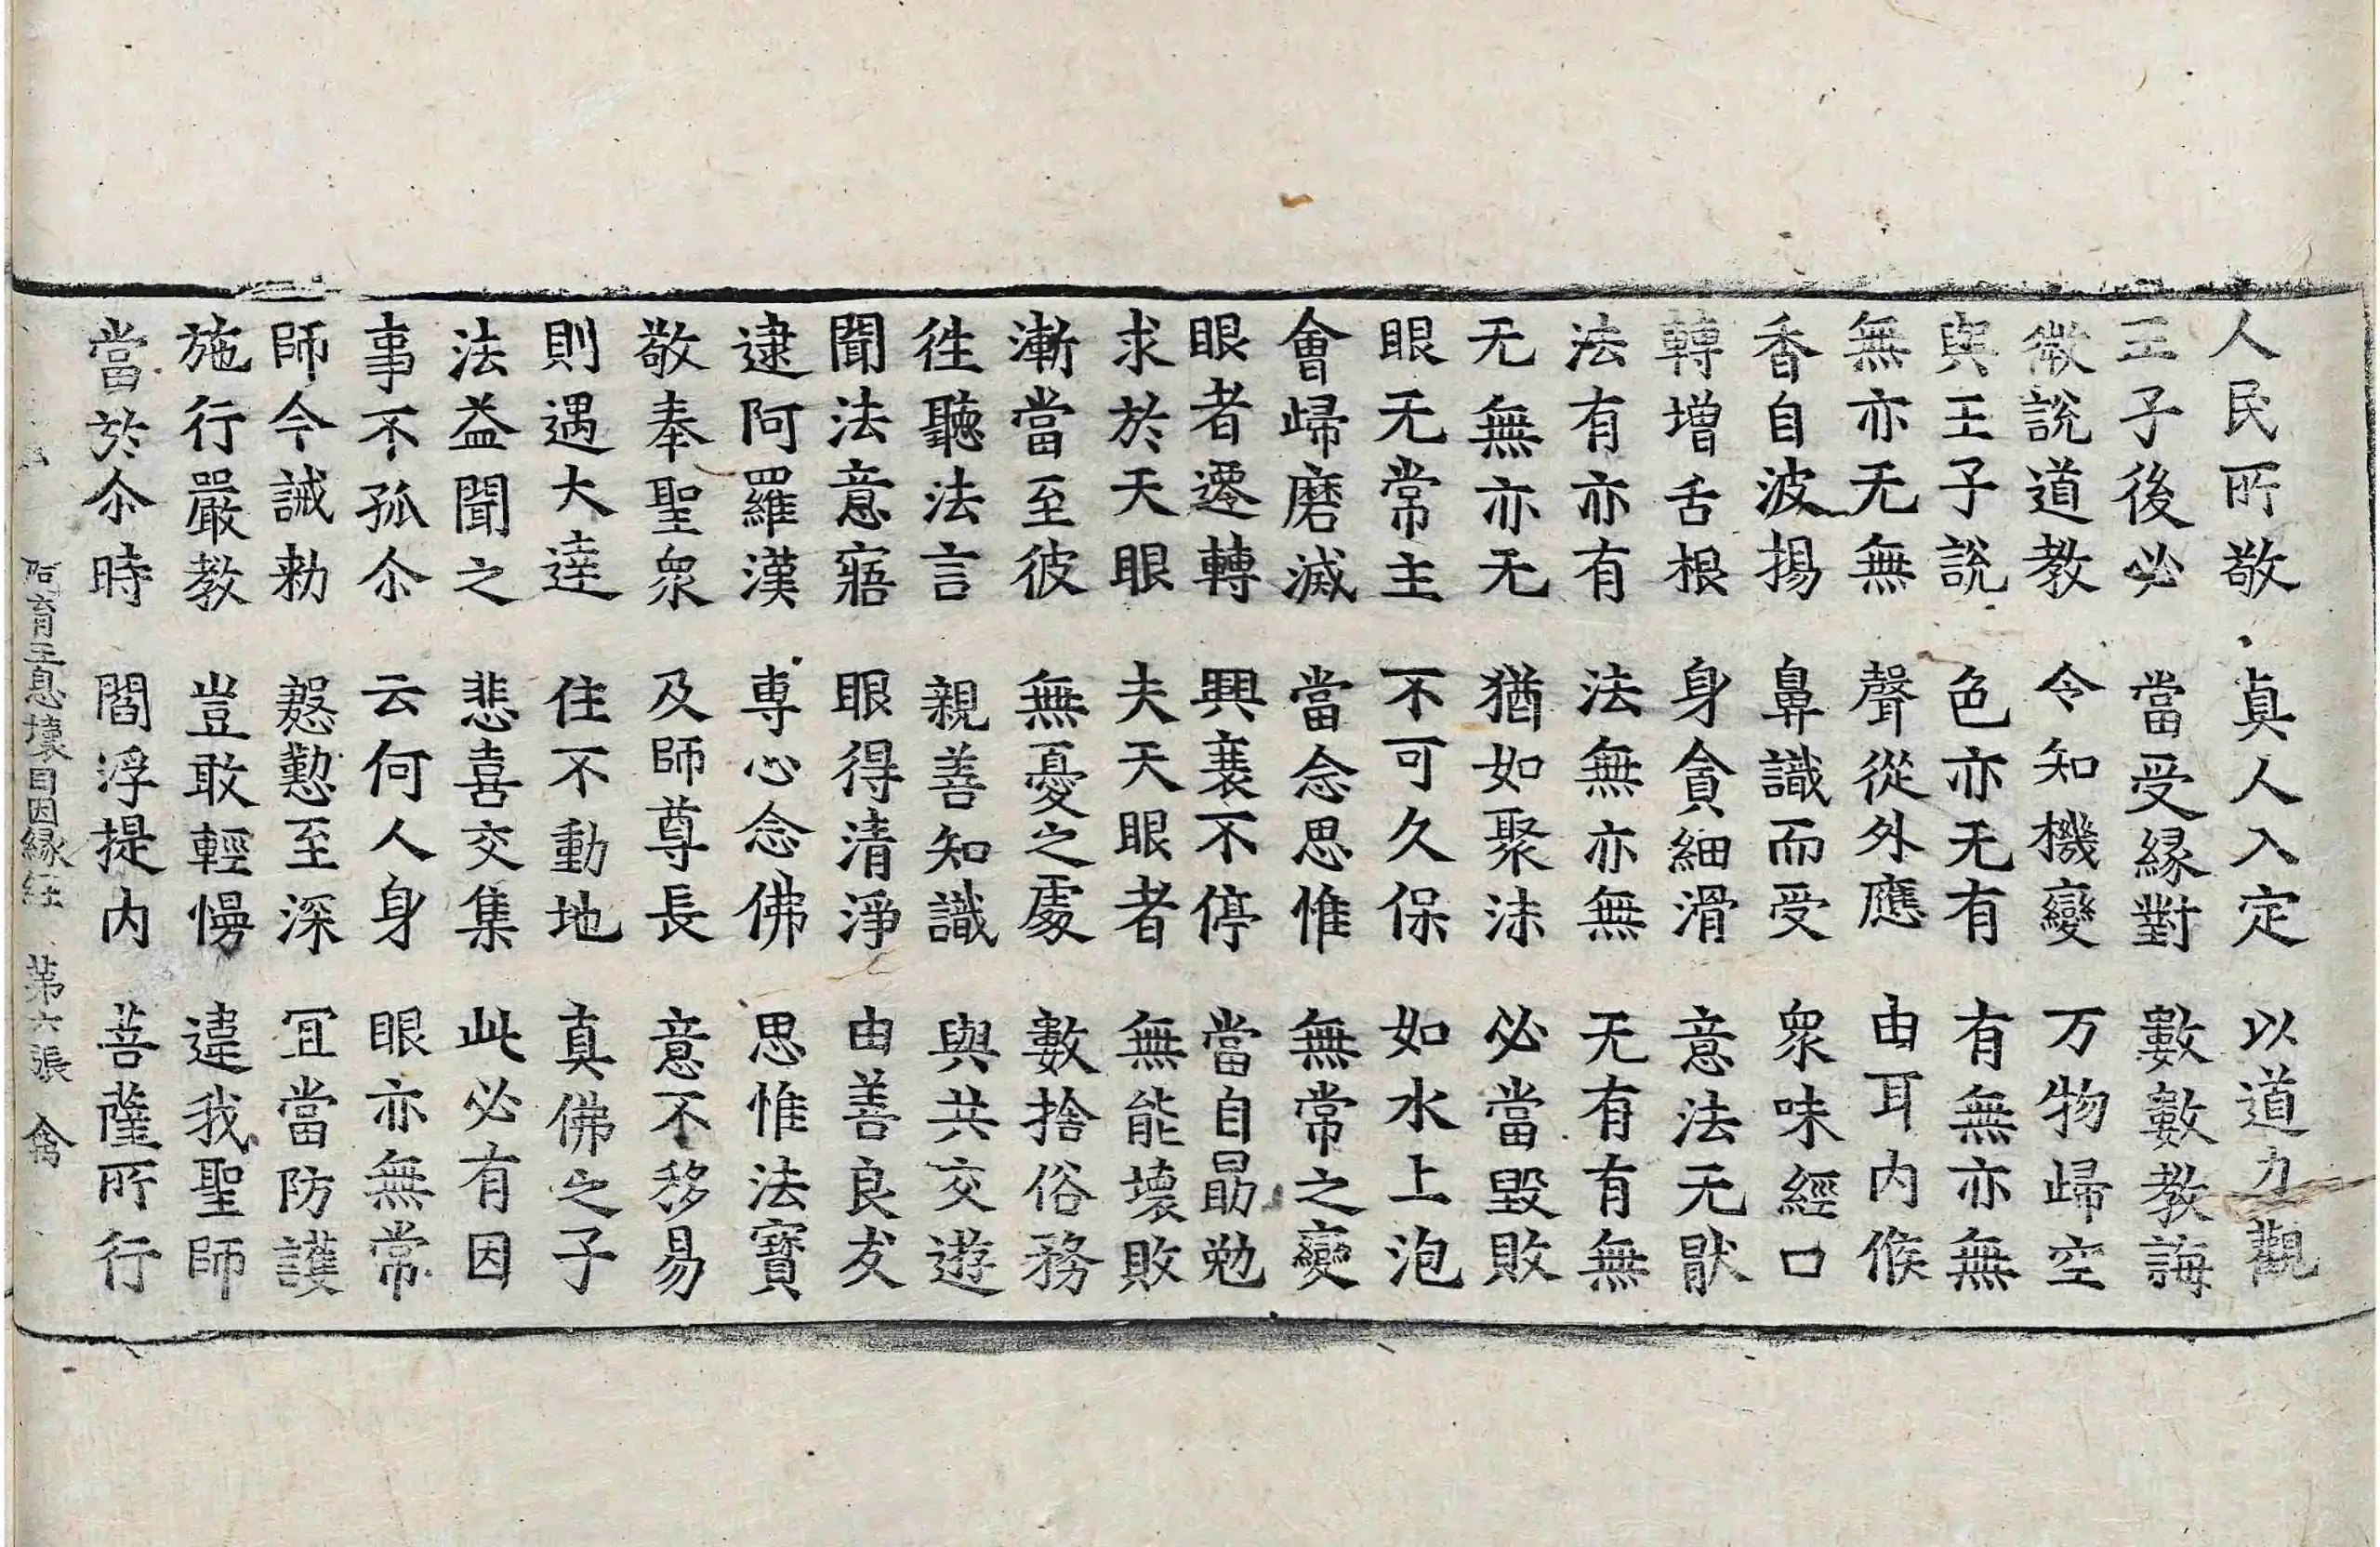 人民所敬　真人入定　以道力觀
王子後必　當受緣對　數數教誨
微說道教　令知機變　万物歸空
與王子說　色亦无有　有無亦無
無亦无無　聲從外應　由耳內候
香自波揚　鼻識而受　眾味經口
轉增舌根　身貪細滑　意法无猒
法有亦有　法無亦無　无有有無
无無亦无　猶如聚沫　必當毀敗
眼无常主　不可久保　如水上泡
會歸磨滅　當念思惟　無常之變
眼者遷轉　興衰不停　當自勗勉
求於天眼　夫天眼者　無能壞敗
漸當至彼　無憂之處　數捨俗務
徃聽法言　親善知識　與共交遊
聞法意寤　眼得清淨　由善良友
逮阿羅漢　專心念佛　思惟法寶
敬奉聖眾　及師尊長　意不移易
則遇大達　住不動地　真佛之子
法益聞之　悲喜交集　此必有因
事不孤尒　云何人身　眼亦無常
師今誡勑　慇懃至深　宜當防護
施行嚴教　豈敢輕慢　違我聖師
當於尒時　閻浮提內　菩薩所行
阿育王息壞目因緣經　第六張　禽